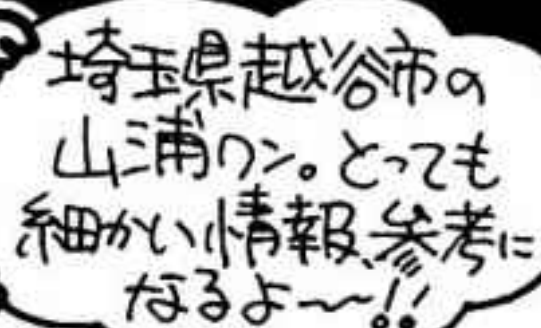 埼玉県越谷市の
山浦ワン。とっても
細かい情報、参考に
なるよ〜〜!!